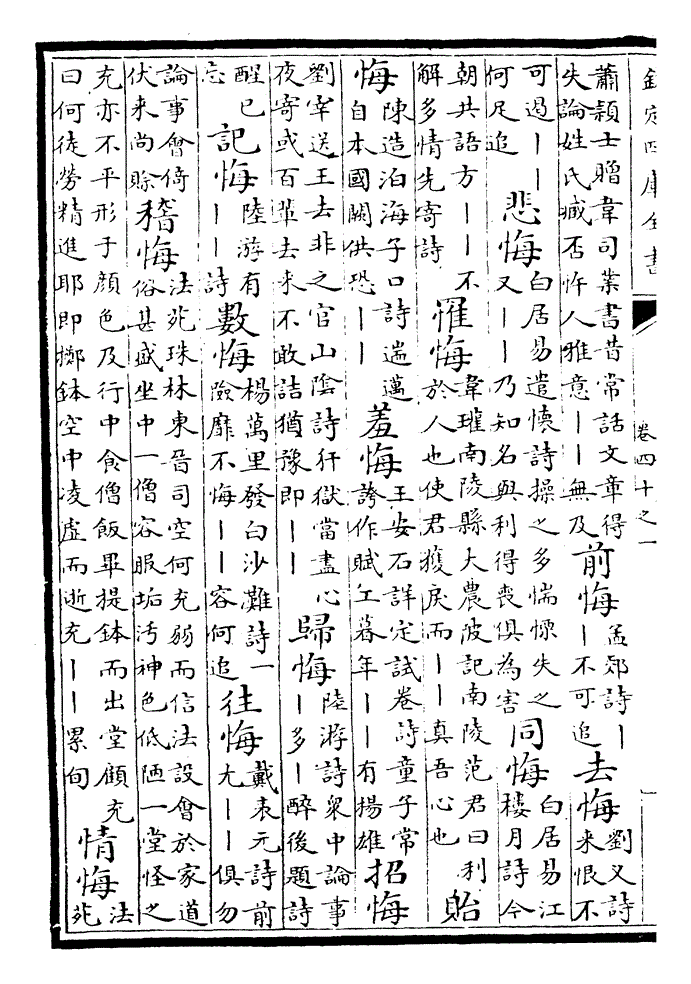 欽定四庫全書
卷四十之一
蕭穎士贈韋司業書昔常話文章得失論姓氏臧否忤人雅意｜｜無及 前悔 孟郊詩｜｜不可追 去悔 劉乂詩來恨不
可遏｜｜何足追 悲悔 白居易遣懷詩操之多惴慄失之又｜｜乃知名與利得喪俱為害 同悔 白居易江樓月詩今
朝共語方｜｜不解多情先寄詩 罹悔 韋瓘南陵縣大農陂記南陵范君曰利於人也使君獲戾而｜｜真吾心也 貽
悔 陳造泊海子口詩遄邁自本國闕供恐｜｜ 羞悔 王安石詳定試卷詩童子常誇作賦工暮年｜｜有揚雄 招悔
劉宰送王去非之官山陰詩犴獄當盡心夜寄或百輩去来不敢詰猶豫即｜｜ 歸悔 陸游詩衆中論事｜多｜醉後題詩
醒已忘 記悔 陸游有｜｜詩 數悔 楊萬里發白沙灘詩一險靡不悔｜｜容何追 往悔 戴表元詩前尤｜｜俱勿
論事會倚伏来尚賒 稽悔 法苑珠林東晉司空何充弱而信法設會於家道俗甚盛坐中一僧容服垢汚神色低陋一堂怪之
充亦不平形于顔色及行中食僧飯畢提鉢而出堂顧充曰何徒勞精進耶即擲鉢空中凌虚而逝充｜｜累旬 情悔 法苑